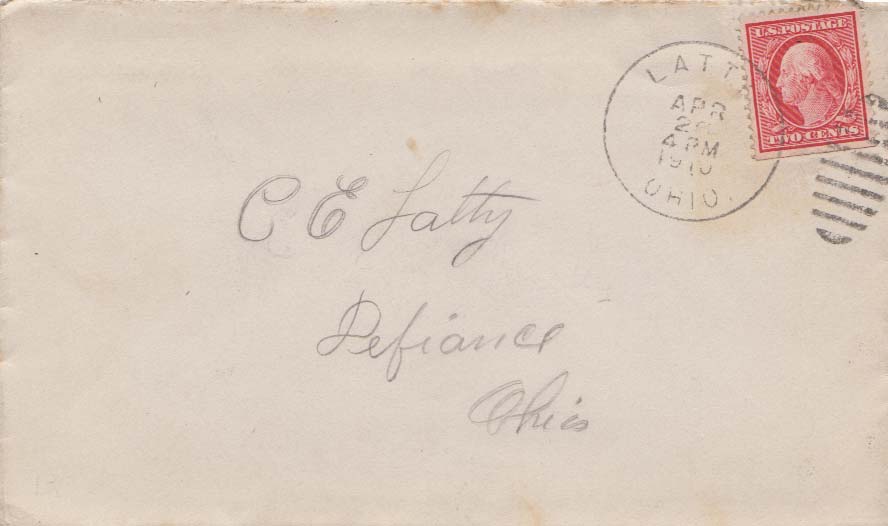 U.S. POSTAGE
TWO CENTS
LATTY
APR
4 PM
1910
OHIO.
C E Latty
Defiance
Ohio